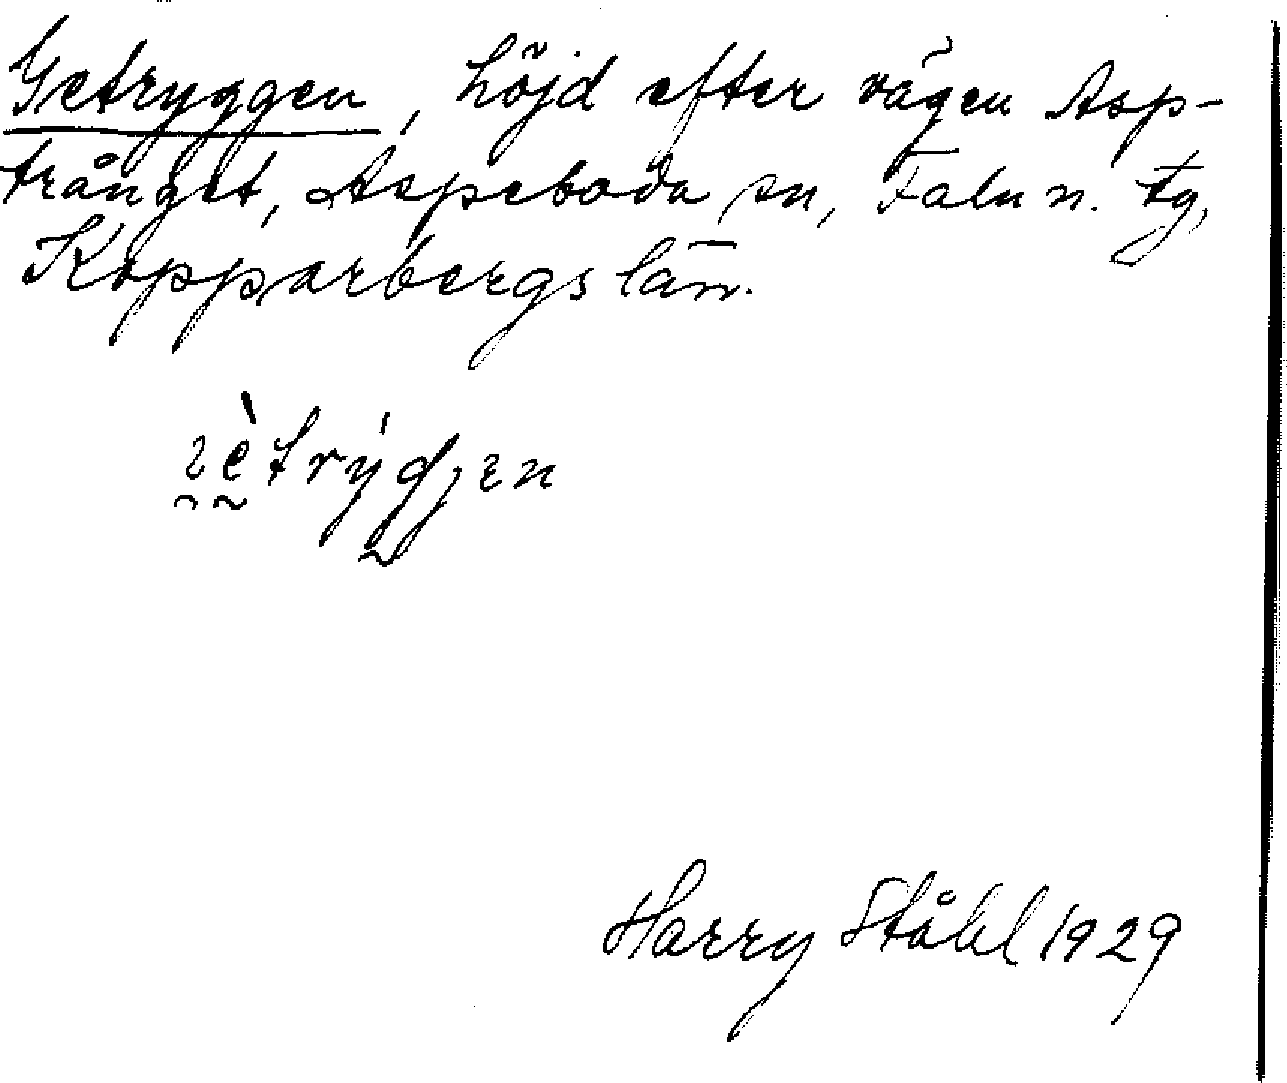 Getryggen, höjd efter vägen Asp-
trånget, Aspeboda sn, Falu n. tg,
Kopparbergs län.
Harry Ståhl 1929